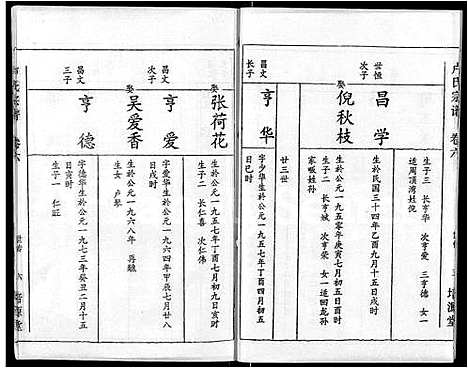 卢氏宗谱 卷六
培源堂
生子三 长亨华 次亨爱 三亨德 女一
适周顶湾姓倪
世恒
次子
昌学
生於民国三十四年乙酉九月十五日戌时
娶
倪秋枝
生於公元一九五零年庚寅七月初五日亥时
生子二 长亨城 次亨荣 女一适田龙孙
家畈姓孙
廿三世
昌文
长子
亨华
字少华生於公元一九五七年丁酉四月初五
日巳时
娶
张荷花
生於公元一九五七年丁酉七月初四日亥时
生子二 长仁喜 次仁伟
昌文
次子
亨爱
字爱华生於公元一九六四年甲辰七月廿八
日戌时
娶
吴爱香
生於公元一九六八年 再醮
生女 卢琴
昌文
三子
亨德
字德华生於公元一九七三年癸丑二月十五
日寅时
生子一 仁旺
卢氏宗谱 卷六
世传 六
培源堂